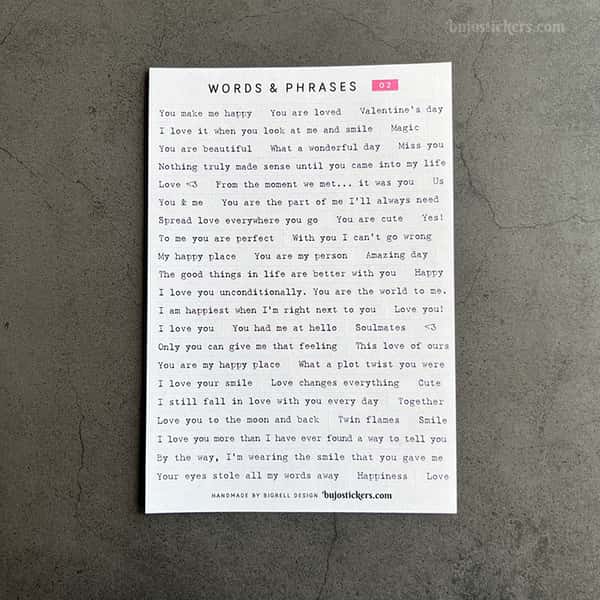 bujostickers.com
WORDS & PHRASES 02
You make me happy You are loved Valentine's day
I love it when you look at me and smile Magic
You are beautiful What a wonderful day Miss you
Nothing truly made sense until you came into my life
Love <3 From the moment we met... it was you Us
You & me You are the part of me I'll always need
Spread love everywhere you go You are cute Yes!
To me you are perfect With you I can't go wrong
My happy place You are my person Amazing day
The good things in life are better with you Happy
I love you unconditionally. You are the world to me.
I am happiest when I'm right next to you Love you!
I love you You had me at hello Soulmates <3
Only you can give me that feeling This love of ours
You are my happy place What a plot twist you were
I love your smile Love changes everything Cute
I still fall in love with you every day Together
Love you to the moon and back Twin flames Smile
I love you more than I have ever found a way to tell you
By the way, I'm wearing the smile that you gave me
Your eyes stole all my words away Happiness Love
HANDMADE BY BIGRELL DESIGN bujostickers.com